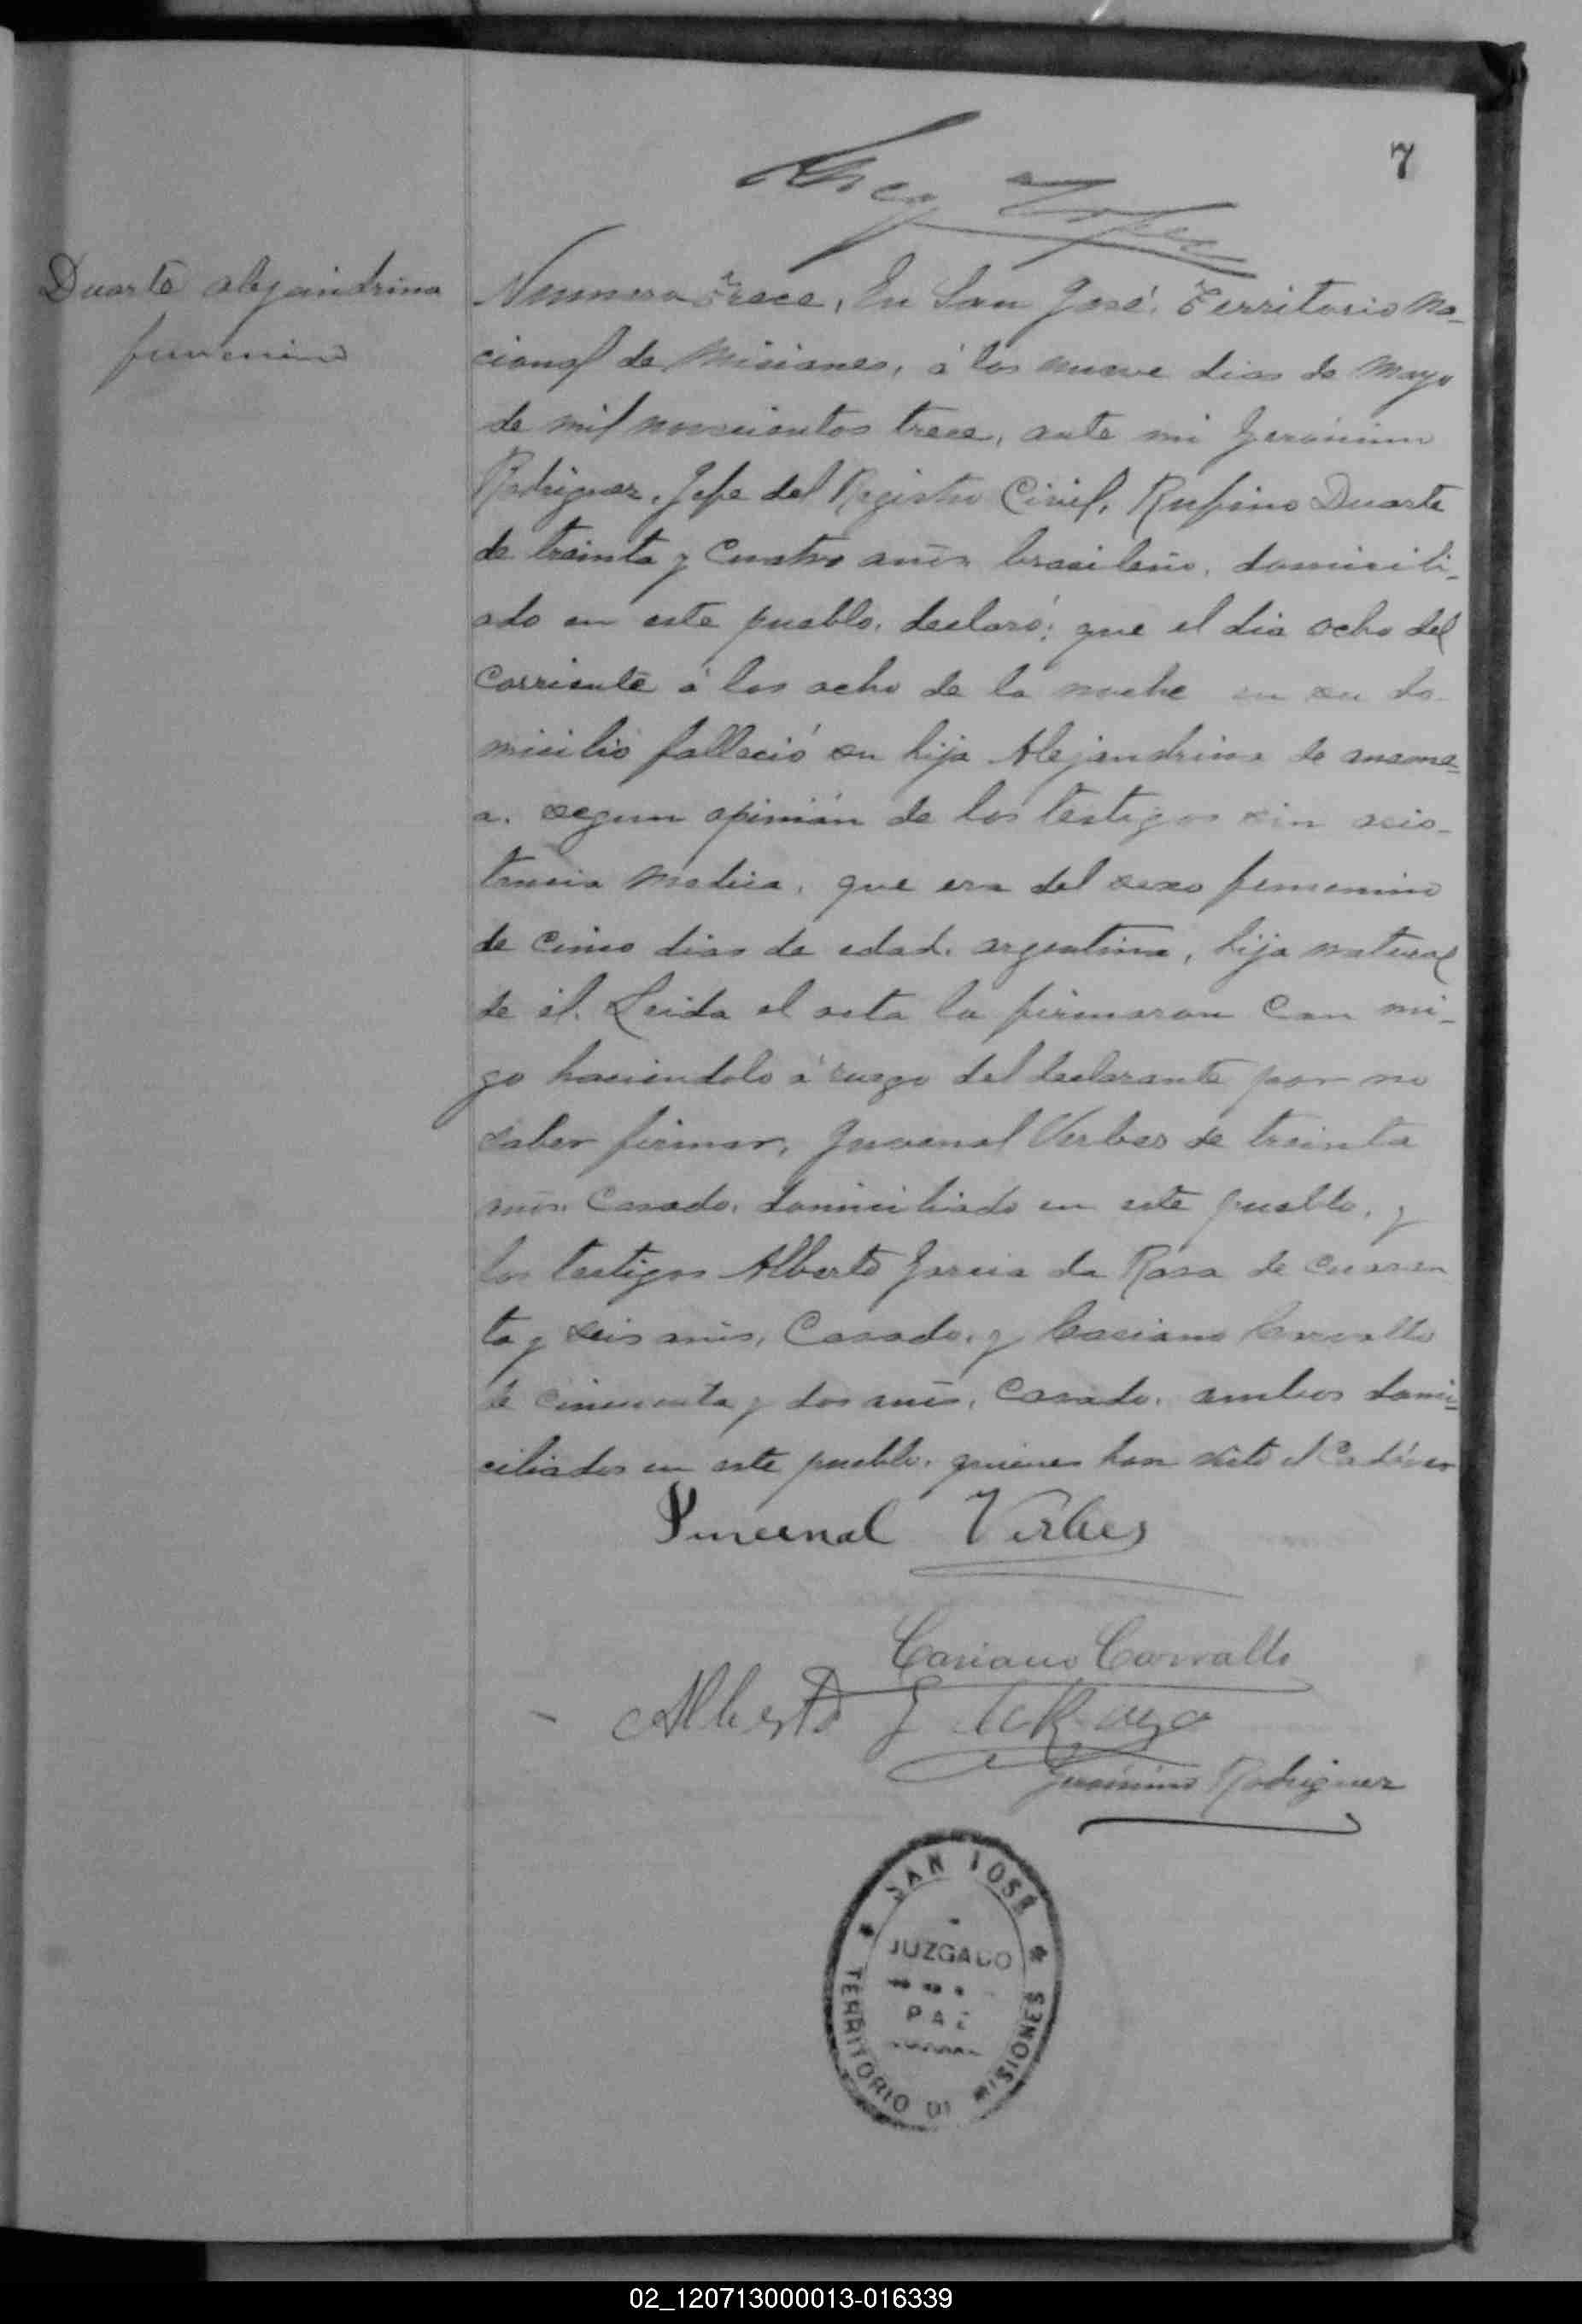 7
Duarte alejandrina
femenino
Numero Trece, En San José, Territorio Na_
cional de Misiones, á los nueve dias de Mayo
de mil novecientos trece, ante mi Gerónimo
Rodriguez, Jefe del Registro Civil, Rufino Duarte
de treinta y cuatro años brasileño, domicili_
ado en este pueblo, declaró; que el dia ocho del
corriente á las ocho de la noche en su do_
micilio falleció su hija Alejandrina de
a. segun opinión de los testigos sin asis_
tencia medica, que era del sexo femenino
de cinco dias de edad, argentina, hija natural
de él. Leida el acta la firmaron con mi_
go haciendolo á ruego del declarante por no
saber firmar, Juvenal Verbes de treinta
años, casado, domiciliado en este pueblo, y
los testigos Alberto Garcia da Rosa de cuaren
ta y seis años, Casado, y Casiano Carvallo
de cincuenta y dos años, casado, ambos domi_
ciliados en este pueblo, quienes han visto el Cadáver
Juvenal Verbes
Casiano Carvallo
Alberto G da Roza
Gerónimo Rodriguez
SAN JOSÉ
JUZGADO
PAZ
TERRITORIO DE MISIONES
02_120713000013-016339